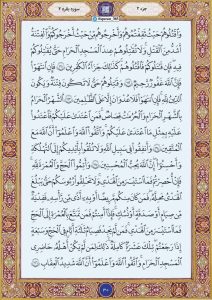 جزء ۲
سوره بقره ۲
وَاقْتُلُوهُمْ حَيْثُ ثَقِفْتُمُوهُمْ وَأَخْرِجُوهُمْ مِنْ حَيْثُ أَخْرَجُوكُمْ وَالْفِتْنَةُ
أَشَدُّ مِنَ الْقَتْلِ وَلَا تُقَاتِلُوهُمْ عِنْدَ الْمَسْجِدِ الْحَرَامِ حَتَّى يُقَاتِلُوكُمْ
فِيهِ فَإِنْ قَاتَلُوكُمْ فَاقْتُلُوهُمْ كَذَلِكَ جَزَاءُ الْكَافِرِينَ ۱۹۱ فَإِنِ انْتَهَوْا
فَإِنَّ اللَّهَ غَفُورٌ رَحِيمٌ ۱۹۲ وَقَاتِلُوهُمْ حَتَّى لَا تَكُونَ فِتْنَةٌ وَيَكُونَ
الدِّينُ لِلَّهِ فَإِنِ انْتَهَوْا فَلَا عُدْوَانَ إِلَّا عَلَى الظَّالِمِينَ ۱۹۳ الشَّهْرُ الْحَرَامُ
بِالشَّهْرِ الْحَرَامِ وَالْحُرُمَاتُ قِصَاصٌ فَمَنِ اعْتَدَى عَلَيْكُمْ فَاعْتَدُوا
عَلَيْهِ بِمِثْلِ مَا اعْتَدَى عَلَيْكُمْ وَاتَّقُوا اللَّهَ وَاعْلَمُوا أَنَّ اللَّهَ مَعَ
الْمُتَّقِينَ ۱۹۴ وَأَنْفِقُوا فِي سَبِيلِ اللَّهِ وَلَا تُلْقُوا بِأَيْدِيكُمْ إِلَى التَّهْلُكَةِ
وَأَحْسِنُوا إِنَّ اللَّهَ يُحِبُّ الْمُحْسِنِينَ ۱۹۵ وَأَتِمُّوا الْحَجَّ وَالْعُمْرَةَ لِلَّهِ
فَإِنْ أُحْصِرْتُمْ فَمَا اسْتَيْسَرَ مِنَ الْهَدْيِ وَلَا تَحْلِقُوا رُءُوسَكُمْ حَتَّى يَبْلُغَ
الْهَدْيُ مَحِلَّهُ فَمَنْ كَانَ مِنْكُمْ مَرِيضًا أَوْ بِهِ أَذًى مِنْ رَأْسِهِ فَفِدْيَةٌ
مِنْ صِيَامٍ أَوْ صَدَقَةٍ أَوْ نُسُكٍ فَإِذَا أَمِنْتُمْ فَمَنْ تَمَتَّعَ بِالْعُمْرَةِ إِلَى الْحَجِّ
فَمَا اسْتَيْسَرَ مِنَ الْهَدْيِ فَمَنْ لَمْ يَجِدْ فَصِيَامُ ثَلَاثَةِ أَيَّامٍ فِي الْحَجِّ وَسَبْعَةٍ
إِذَا رَجَعْتُمْ تِلْكَ عَشَرَةٌ كَامِلَةٌ ذَلِكَ لِمَنْ لَمْ يَكُنْ أَهْلُهُ حَاضِرِي
الْمَسْجِدِ الْحَرَامِ وَاتَّقُوا اللَّهَ وَاعْلَمُوا أَنَّ اللَّهَ شَدِيدُ الْعِقَابِ ۱۹۶
۳۰